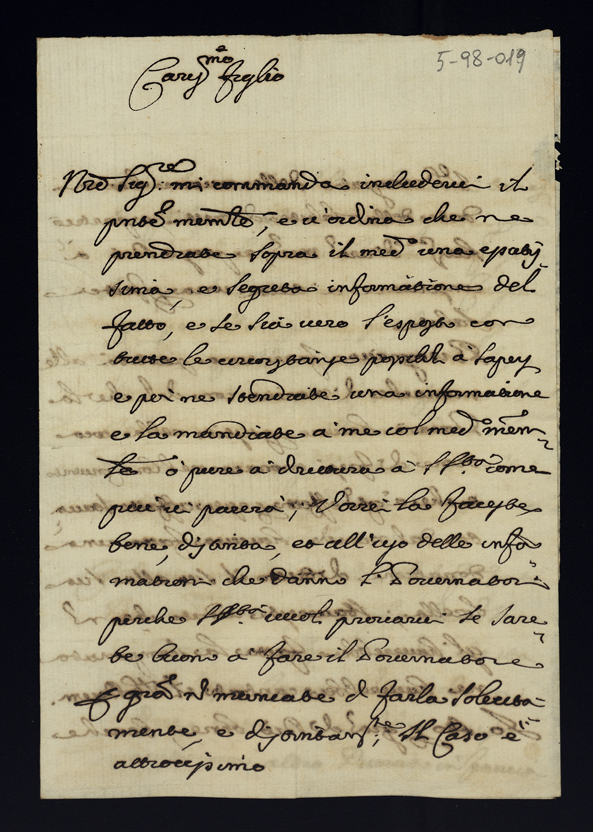 5-98-019
Caris.mo figlio
Nro Sig.re mi commanda includervi il
pnte memle, e v'ordina che ne
prendiate sopra il med.o una esatis
sima, e segreta informatione del
fatto, e se sia vero l'esposto con
tutte le circostanze possibili à sapersi
e poi ne stendiate una informatione
e la mandiate à me col med.o mem
le ò pure à drittura à come
più vi piacerà; Vorrei la faceste
bene, distinta, et all'uso delle infor
mationi che danno l. Governatori
perche vuol provarvi se sare
te buon à fare il Governatore
E però nò mancate d farla solecita
mente, e distintam.te; Il Caso è
attrocissimo